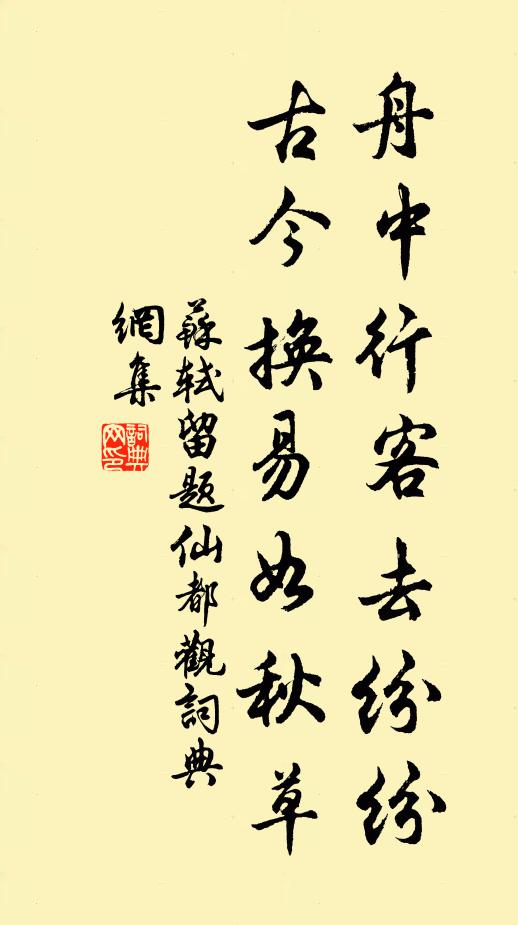 舟中行客去纷纷
古今换易如秋草
蘇軾留题仙都觀詞典
網集
詞典
网印